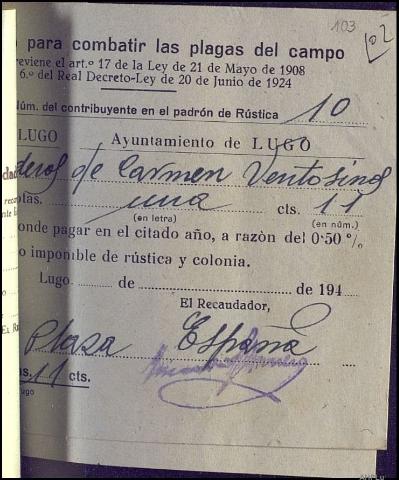 103
102
para combatir las plagas del campo
reviene el art.º 17 de la Ley de 21 de Mayo de 1908
6.º del Real Decreto-Ley de 20 de Junio de 1924
Núm. del contribuyente en el padrón de Rústica 10
LUGO Ayuntamiento de LUGO
deros de Carmen Ventosinos
tas. una cts. 11
(en letra) (en núm.)
onde pagar en el citado año, a razòn del 0·50 %
o imponible de rústica y colonia.
Lugo. de de 194
El Recaudador,
Plasa España
as. 11 cts.
ugo